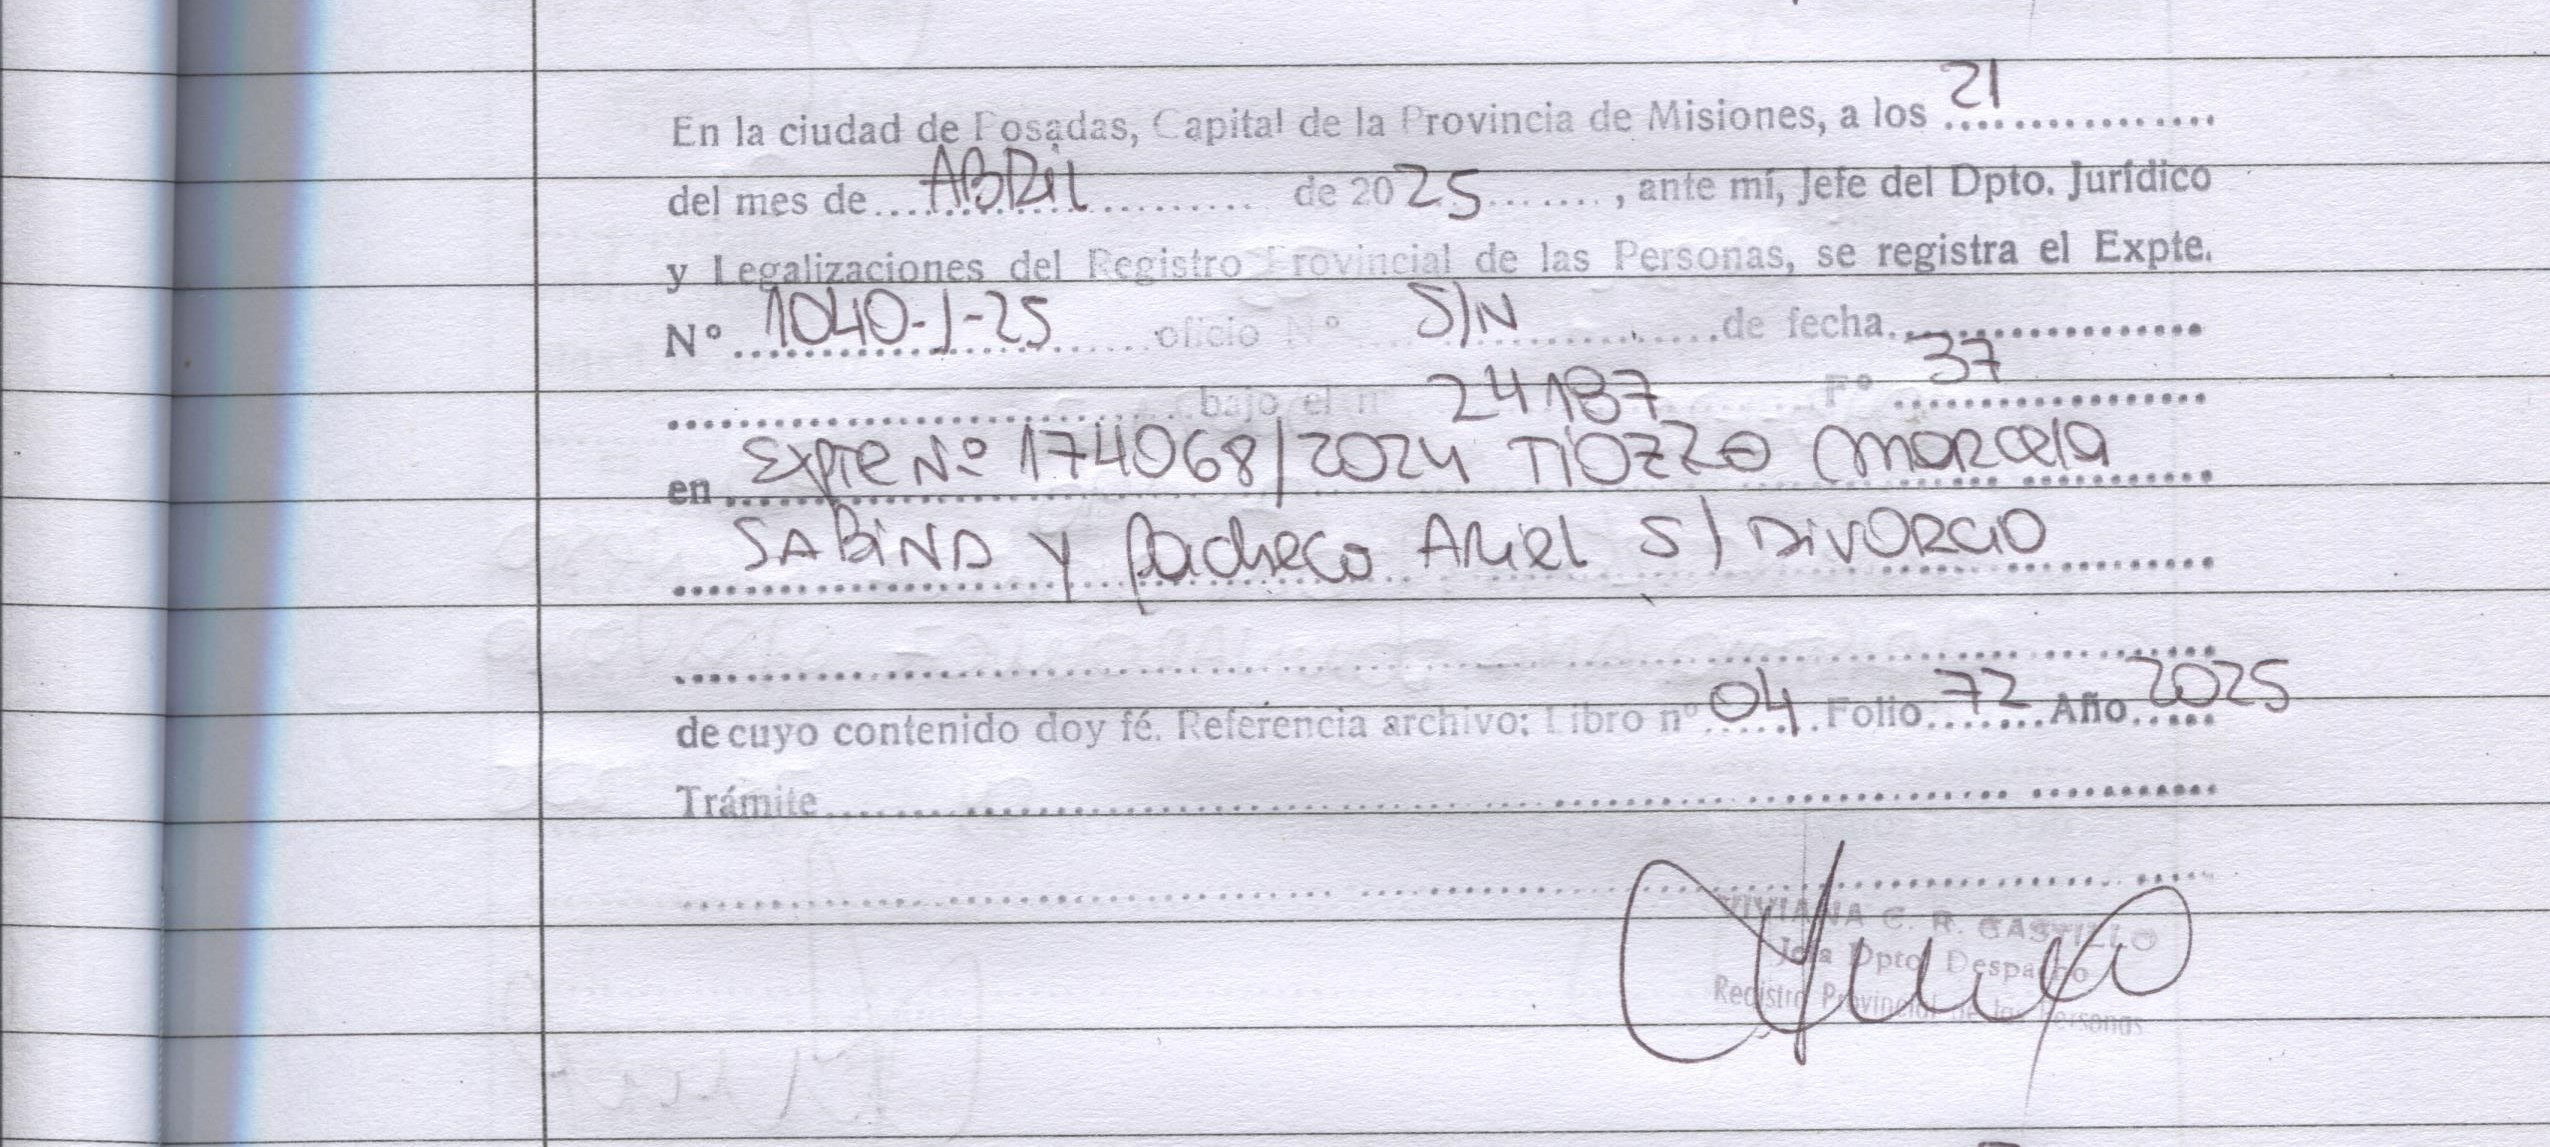 En la ciudad de Posadas, Capital de la Provincia de Misiones, a los 21
del mes de ABRil de 2025, ante mí, Jefe del Dpto. Jurídico
y Legalizaciones del Registro Provincial de las Personas, se registra el Expte.
Nº 1040-J-25 oficio Nº S/N de fecha
bajo el nº 24187 Fº 37
en Expte Nº 174068/2024 TIOZZO Marcela
SABiNA y Pacheco Ariel S/ DiVORCiO
de cuyo contenido doy fé. Referencia archivo: Libro nº 04 Folio 72 Año 2025
Trámite
VIVIANA C. R. CASTILLO
Jefa Dpto. Despacho
Registro Provincial de las Personas